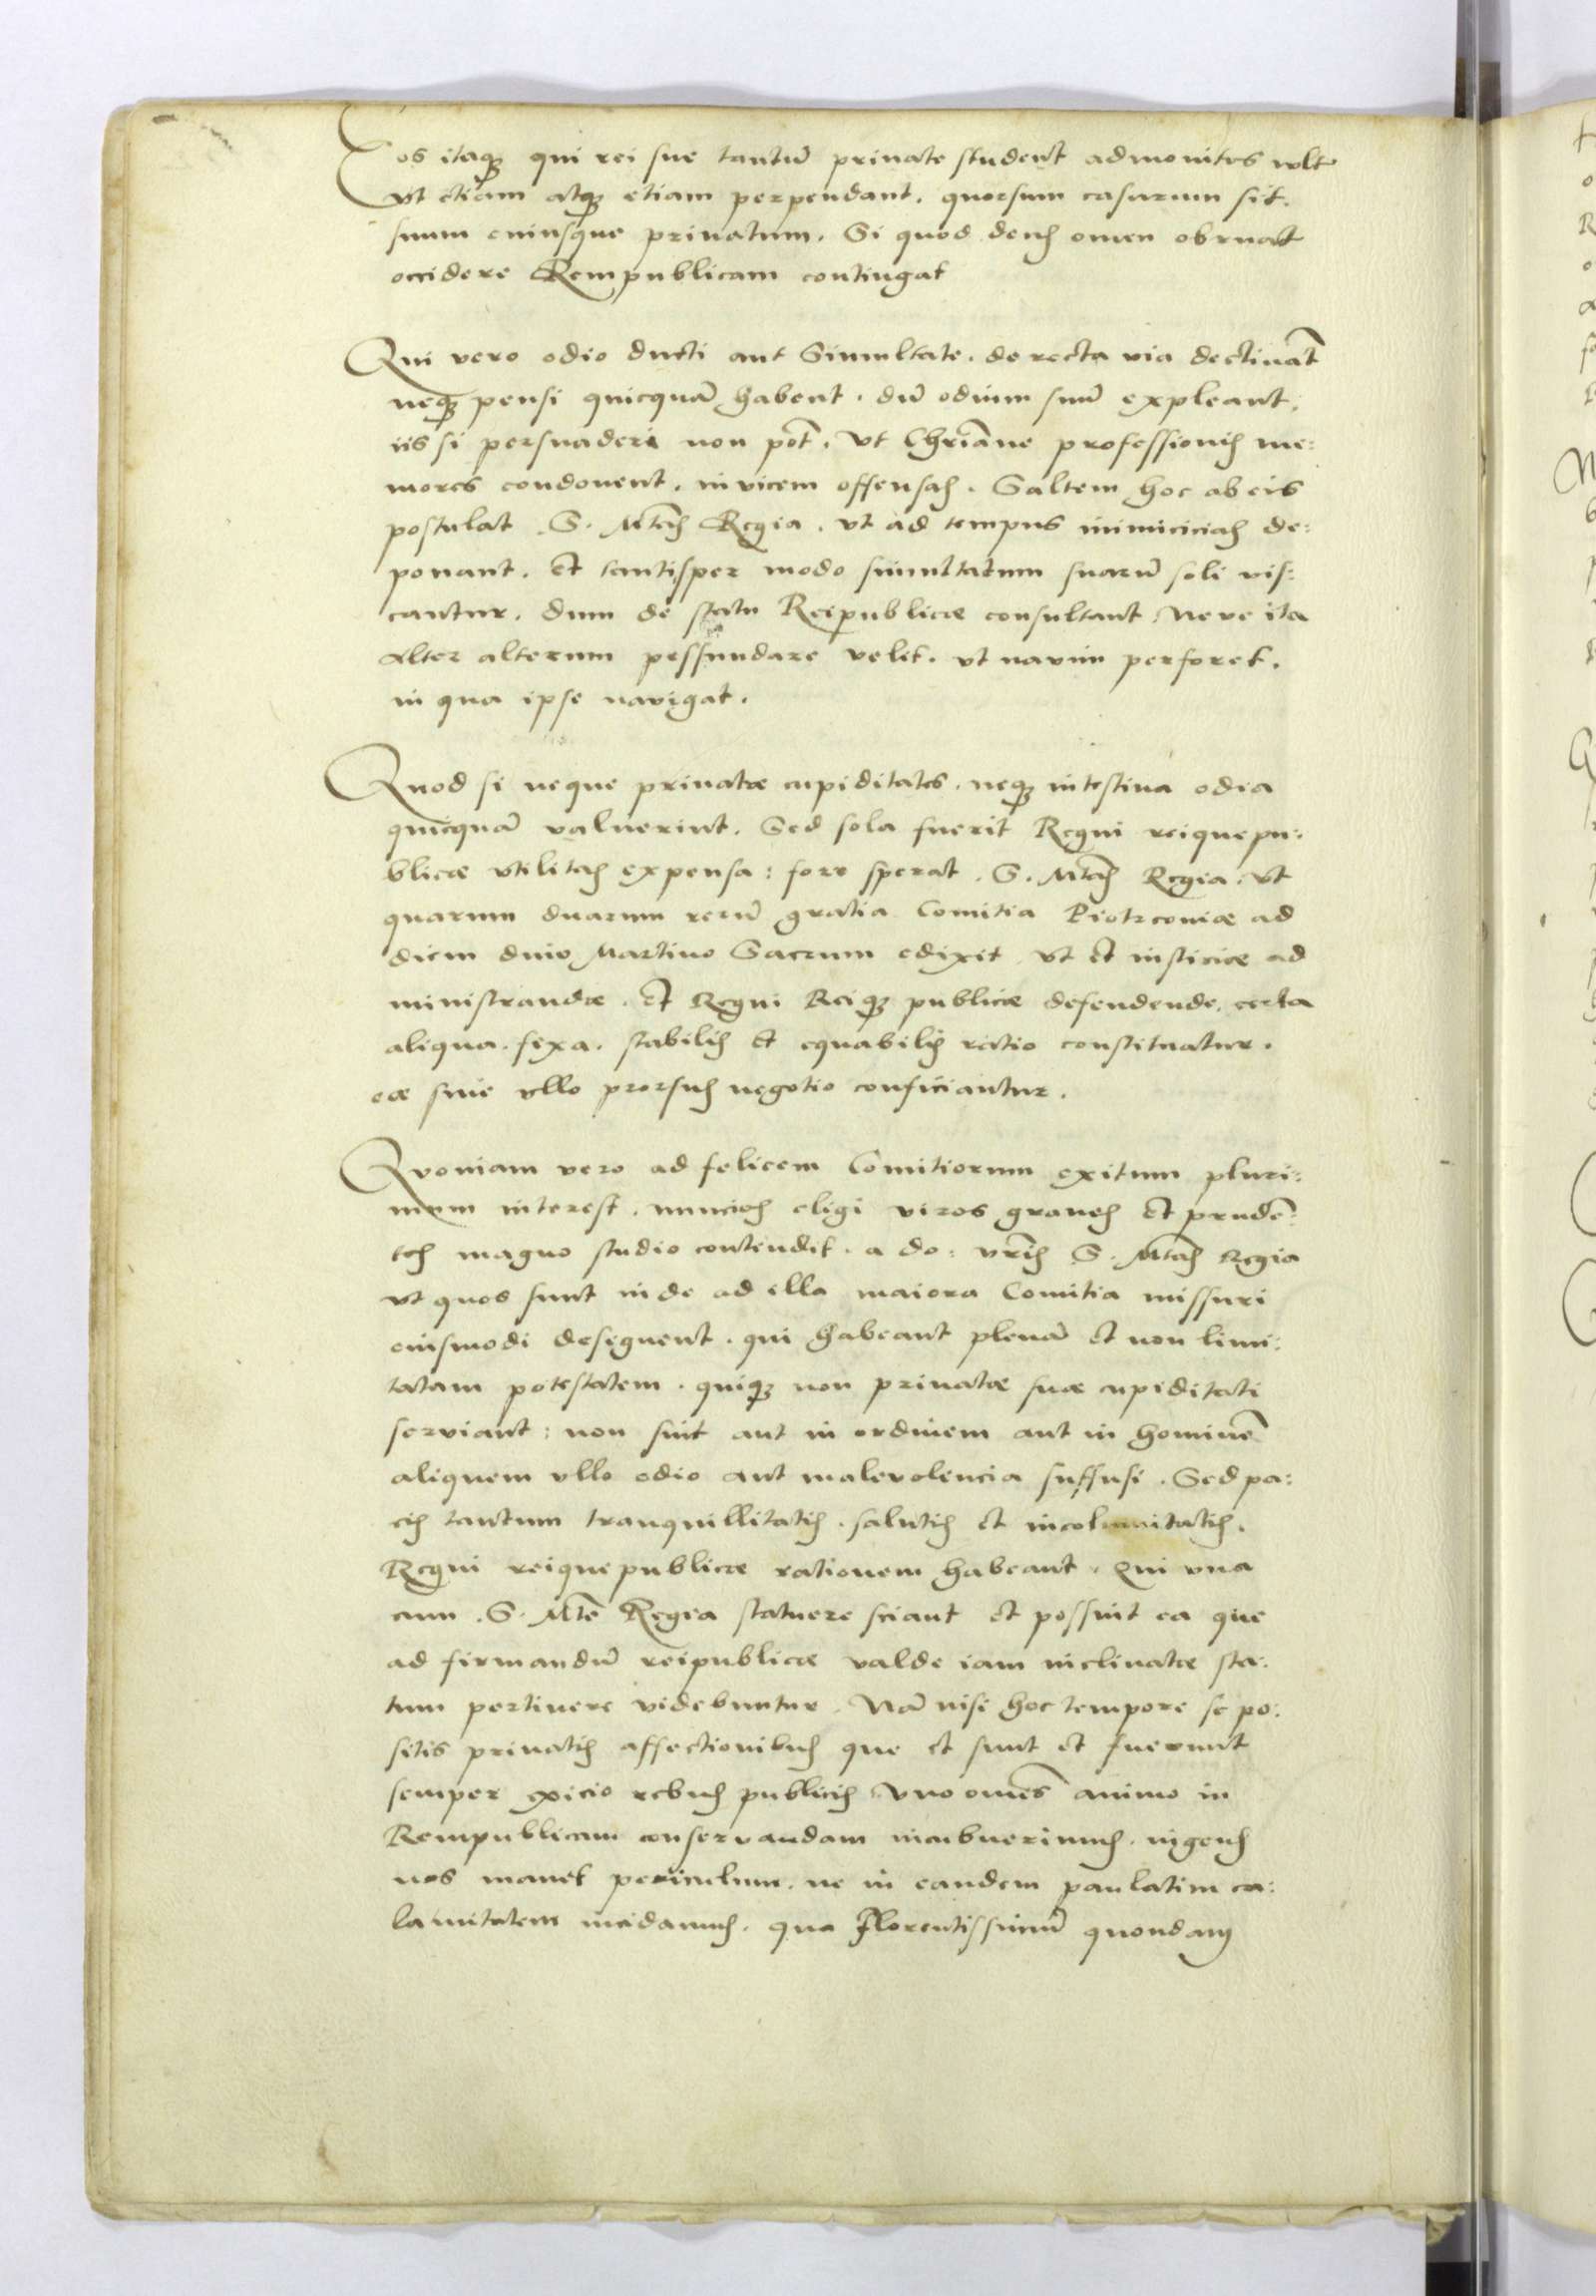 Eos itaq3 qui rei sue tantū priuate student admonitos vult
Vt etiam atq3 etiam perpendant. quorsum casurum sit.
suum cuiusque priuatum. Si quod deus omen obruat
occidere Rempublicam contingat
Qui vero odio ducti aut Simultate. de recta via declināt
neq3 pensi quicquā habent. dū odium suū expleant.
iis si persuaderi non pōt. Vt Chriāne professionis me:
mores condonent. invicem offensas. Saltem hoc ab eis
postulat S. Mtās Regia. vt ad tempus inimicicias de:
ponant. Et tantisper modo simultatum suarū obli vis:
cantur. dum de statu Reipublicæ consultant. Neve ita
alter alterum pessundare velit. vt navim perforet.
in qua ipse navigat.
Quod si neque priuatæ cupiditates. neq3 intestina odia
quicquā valuerint. Sed sola fuerit Regni reique pu:
blicæ vtilitas expensa: fore sperat. S. Mtās Regia. Vt
quarum duarum rerū gratia Comitia Piotrconiæ ad
diem diuo Martino Sacrum edixit. Vt et iusticiæ ad
ministrandæ. Et Regni Reiq3 publicæ defendende. certa
aliqua. fixa. stabilis et equabilis ratio constituatur.
eæ sine vllo prorsus negotio conficiantur.
Quoniam vero ad felicem Comitiorum exitum pluri:
mum interest. nuncios eligi viros graues Et prudē:
tes magno studio contendit. a do: vrīs S. Mtās Regia
vt quos sunt inde ad illa maiora Comitia missuri
eiusmodi designent. qui habeant plenā et non limi:
tatam potestatem. quiq3 non priuatæ suæ cupiditati
serviant: non sint aut in ordinem aut in hominē
aliquem vllo odio aut malevolencia suffusi. Sed pa:
cis tantum tranquillitatis. salutis et incolumitatis.
Regni reique publicæ rationem habeant. Qui vna
cum. S. Mtē Regia statuere sciant et possint ea que
ad firmandū reipublicæ valde iam inclinatæ sta:
tum pertinere videbuntur. Nā nisi hoc tempore se po:
sitis priuatis affectionibus que et sunt et fuerunt
semper exicio rebus publicis vno omēs animo in
Rempublicam conservandam incubuerimus. ingens
nos manet periculum. ne in eandem paulatim ca:
lamitatem incidamus. qua Florentissimū quondam